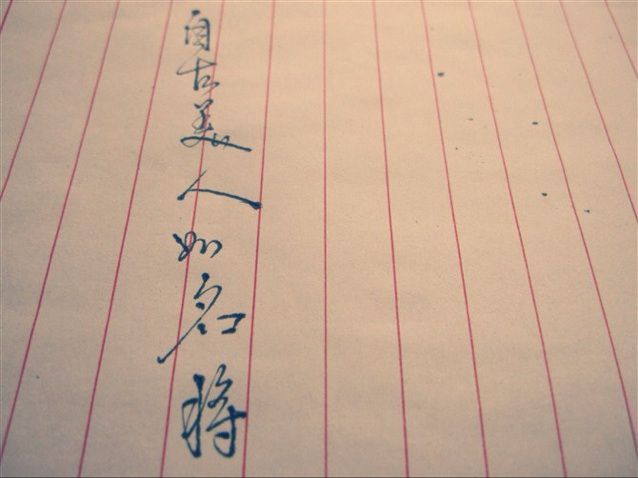 自古美人如名将